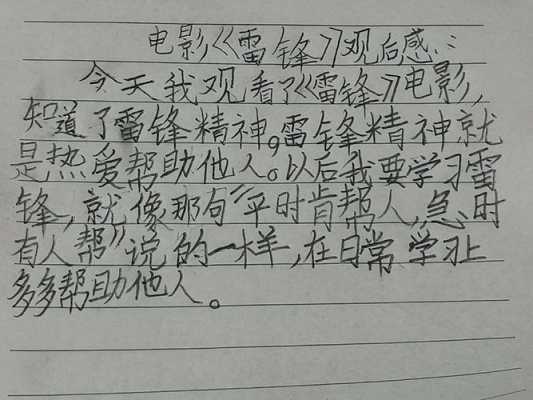 电影《雷锋》观后感：
今天我观看了《雷锋》电影，
知道了雷锋精神。雷锋精神就
是热爱帮助他人。以后我要学习雷
锋，就像那句“平时肯帮人，急时
有人帮”说的一样，在日常学习上
多多帮助他人。